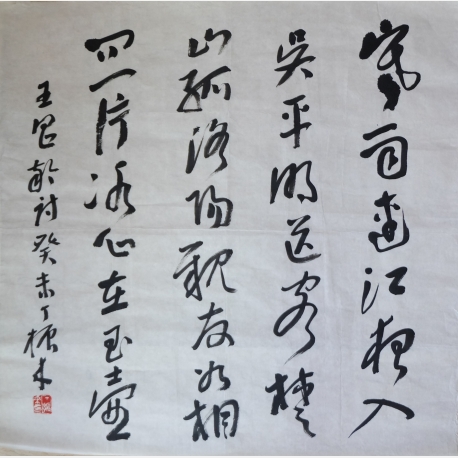 寒雨連江夜入
吳平明送客楚
山孤洛陽親友如相
問一片冰心在玉壺
王昌齡詩癸未丁